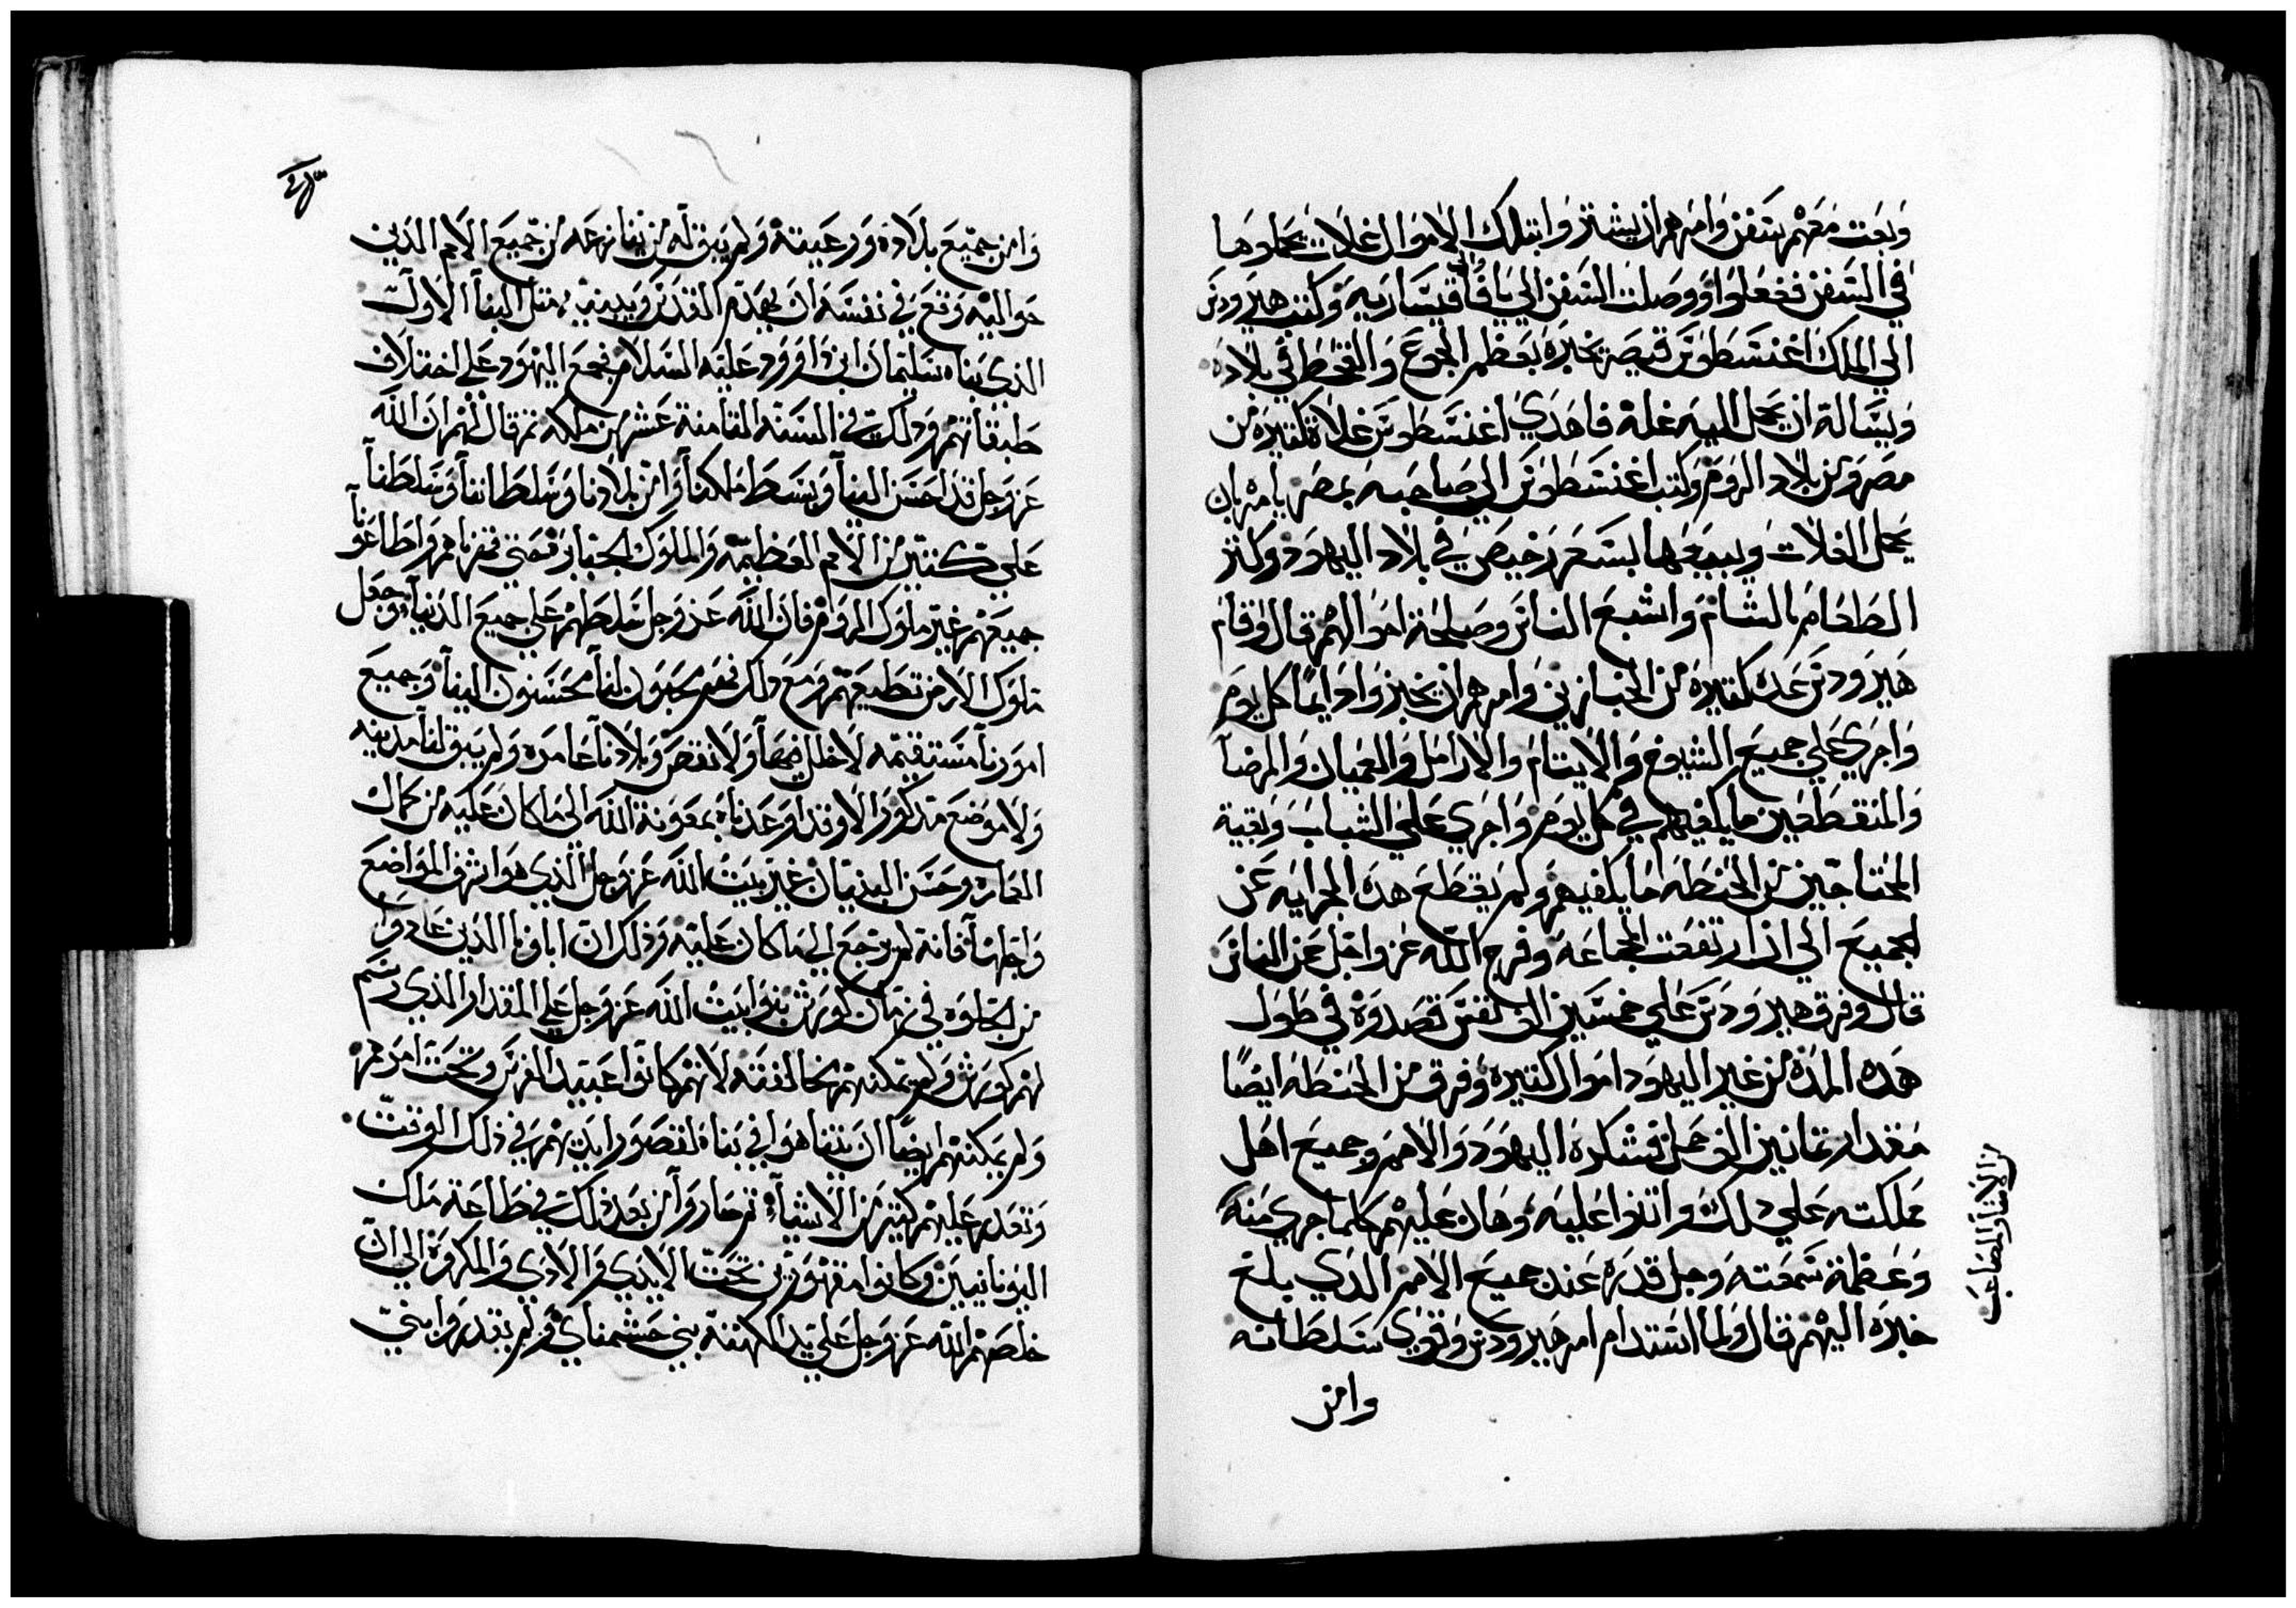 وبعت معهم سفن وامرهم ان يشتروا بتلك الاموال غلات يحملوها
في السفن ففعلوا ووصلت السفن الي يافا الي قيسارية وكتب هيرودس
الي الملك اغسطوس قيصر يخبره بعظم الجوع والقحط في بلاده
ويساله ان يحمل اليه غلة فاهدي اغسطوس غلات كتيره من
مصر ومن بلاد الروم وكتب اغسطوس الي صاحبه بمصر يامره بان
يحمل الغلات ويبيعها بسعر رخيص في بلاد اليهود وكتر
الطعام بالشام واشبع الناس وصلحة احوالهم قال وقام
هيرودس عدة كتيره من الخبازين وامرهم ان يخبزوا دايما كل يوم
واجري علي جميع الشيوخ والايتام والارامل والعميان والمرضا
والمنقطعين ما يكفيهم في كل يوم واجري علي الشباب وبقية
المحتاجين من الحنطه ما يكفيهم ولم يقطع هده الجرايه عن
الجميع الي ان ارتفعت المجاعه وفرج الله عز وجل عن الناس
قال وفرق هيرودس علي خمسين الف نفس قصدوه في طول
هده المده من غير اليهود اموال كتيره وفرق من الحنطه ايضا
مقدار تمانين الف حمل فشكره اليهود والامم وجميع اهل
مملكته علي دلك واتنوا عليه وهان عليهم كلما جري منه
وعظمة سمعته وجل قدره عند جميع الامم الدي بلغ
خبره اليهم قال ولما استدام امر هيرودس وقوي سلطانه
وامن
من الاشيا والمصاعب
وامن جميع بلاده ورعيته ولم يبق له من ينازعه من جميع الامم الدين
حواليه وقع في نفسه ان يهدم القدس ويبنيه متل البنا الاول
الدي بناه سليمان ابن داوود عليه السلام فجمع اليهود علي اختلاف
طبقاتهم ودلك في السنه التامنة عشر من ملكه تم قال لهم ان الله
عز وجل قد احسن الينا وبسط ملكنا وامن بلادنا وسلطاننا وسلطنا
علي كتير من الامم العظيمه والملوك الجبابرة حتي قهرناهم واطاعونا
جميعهم غير ملوك الروم فان الله عز وجل سلطهم علي جميع الدنيا وجعل
ملوك الارض تطيعهم ومع دلك فهم محبون لنا محسنون الينا وجميع
امورنا مستقيمه لا خلل فيها ولا نقص وبلادنا عامره ولم يبق لنا مدينه
ولا موضع مدكور الا وقد اعدناه بمعونة الله الي ما كان عليه من كمال
العماره وحسن البنيان غير بيت الله عز وجل الدي هو اشرف المواضع
واجلها فانه لم يرجع الي ما كان عليه ودلك ان اباونا الدين عادوا
من الجلوه في زمان كورش بنوا بيت الله عز وجل علي المقدار الدي رسم
لهم كورش ولم تمكنهم مخالفته لانهم كانوا عبيد الفرس وتحت امرهم
ولم يمكنهم ايضا ان يتناهوا في بناه لقصور ايديهم في دلك الوقت
وتعدر عليهم كتير من الاشيا تم صاروا من بعد دلك في طاعة ملك
اليونانيين وكانوا مقهورين تحت الايدي والادي والمكروه الي ان
خلصهم الله عز وجل علي يد الكهنة بني حشمناي ولم يقدروا بني